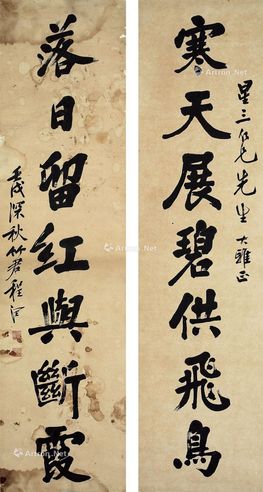 寒天展碧供飛鳥
星三仁兄先生大雅正
落日留紅與斷霞
深秋竹君程
Artron.Net